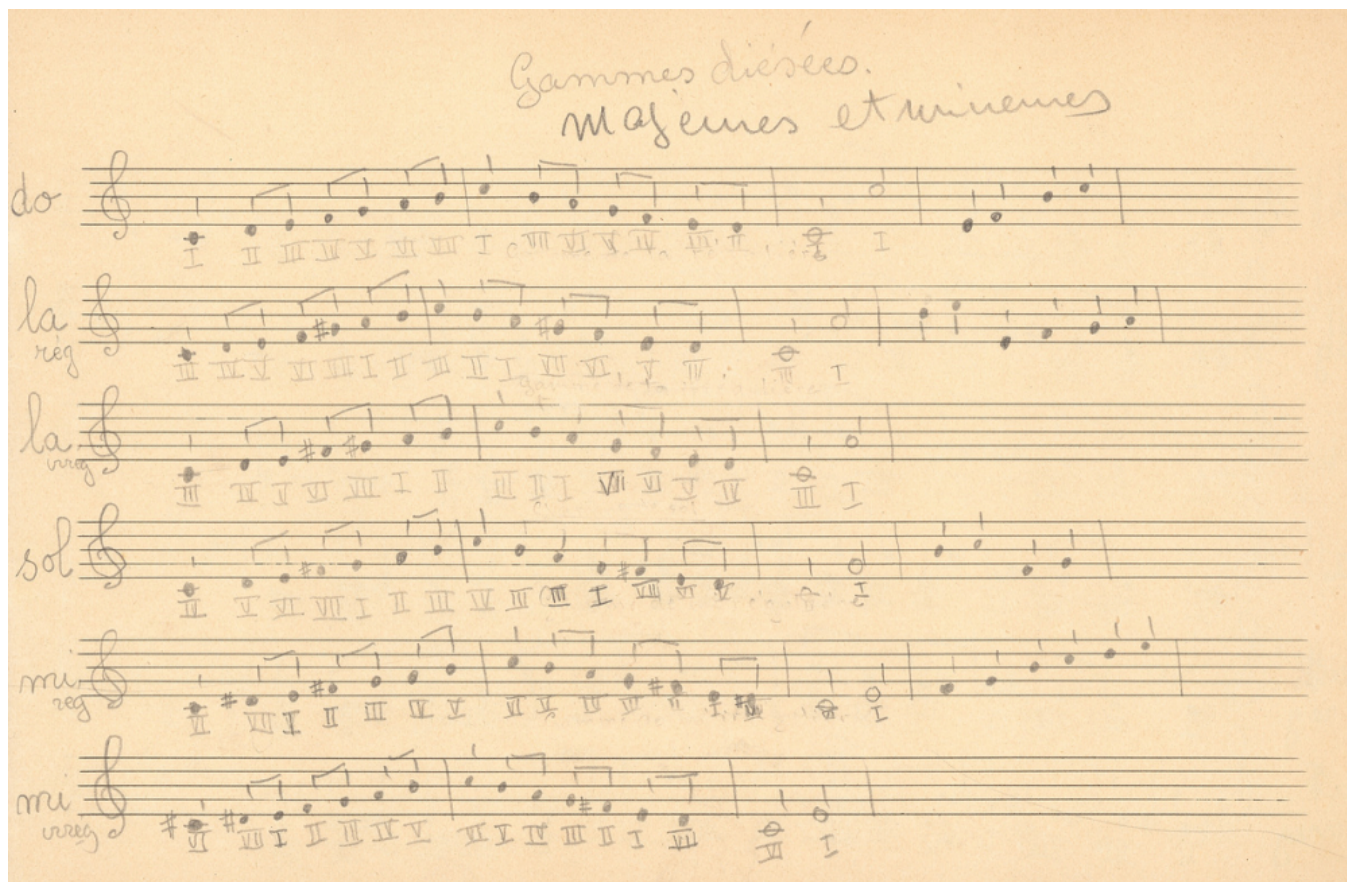 Gammes diésées.
Majeures et mineures
do
I II III IV V VI VII I VII VI V IV III II I I
la
rég
III IV V VI VII I II III II I VII VI V IV III I
la
irrég
III IV V VI VII I II III II I VII VI V IV III I
sol
IV V VI VII I II III IV III II I VII VI V I
mi
rég
VI VII I II III IV V VI V IV III II I VII VI I
mi
irrég
VI VII I II III IV V VI V IV III II I VII VI I